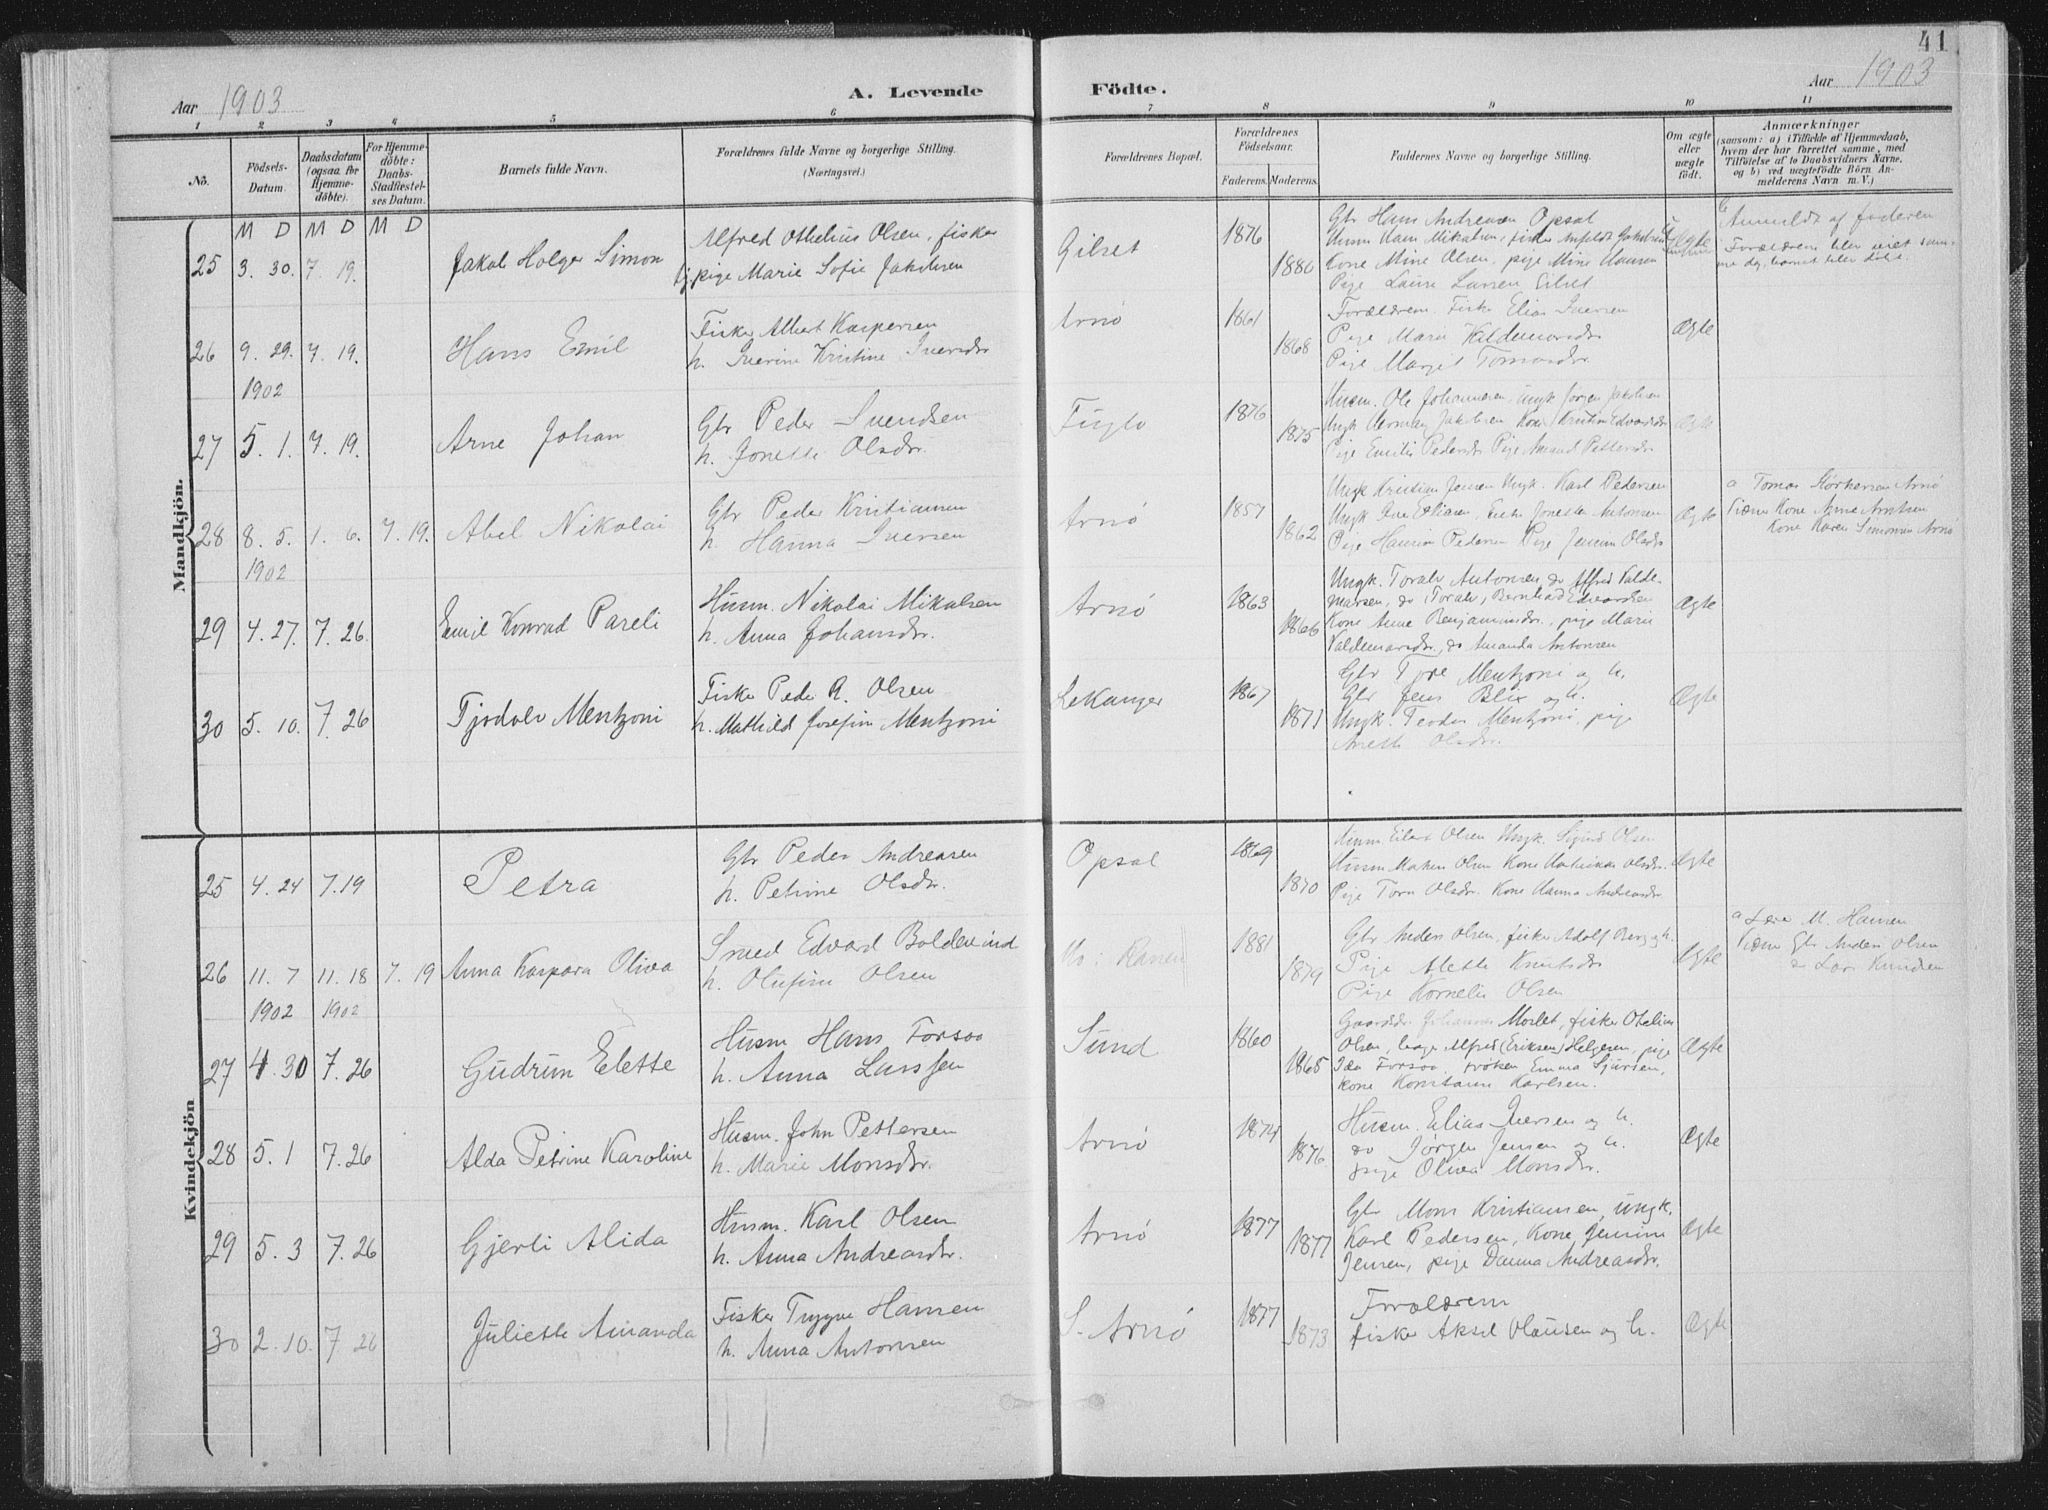 41
Aar 1903
A. Levende Födte.
Aar 1903
1 2 3 4 5 6 7 8 9 10 11
No.
Födsels-
Datum.
Daabsdatum
(ogsaa for
Hjemme-
döbte).
For Hjemme-
döbte:
Daabs-
Stadfæstel-
ses Datum.
Barnets fulde Navn.
Forældrenes fulde Navne og borgerlige Stilling.
(Næringsvei.)
Forældrenes Bopæl.
Forældrenes
Födselsaar.
Faderens. Moderens.
Faddernes Navne og borgerlige Stilling.
Om ægte
eller
uægte
födt.
Anmærkninger
(saasom: a) i Tilfælde af Hjemmedaab,
hvem der har forrettet samme, med
Tilföielse af to Daabsvidners Navne.
og b) ved uægtefödte Börn An-
melderens Navn m. V.)
Mandkjön.
M D M D M D
25 3. 30. 7. 19. Jakob Holger Simon
Alfred Othelius Olsen, fisker
pige Marie Sofie Jakobsen
Gilset
1876
1880
Gbr Hans Andreasen Opsal
Kone Mine Olsen, pige Mine Hansen
Pige Laura Larsen Gilset
Anmeldt af faderen
Forældrene blev viet sam-
me dag, barnet blev døbt.
26 9. 29. 7. 19.
1902
Hans Emil
Fisker Albert Kaspersen
h. Iverine Kristine Iversdr
Arnö
1861
1868
Forældrene Fisker Elias Iversen
Pige Marie Valdemarsdr
Pige Margit Tomasdr.
Ægte
27 5. 1. 7. 19. Arne Johan
Gbr Peder Svendsen
h. Jonette Olsdr.
Fuglö
1876
1875
Husm. Ole Johannesen, Ungk Jørgen Jakobsen
Ungk Herman Jakobsen Kone Kristine Edvardsdr
Pige Emilie Pedersdr Pige Amand Pettersdr
Ægte
28 8. 5. 1. 6. 7. 19.
1902
Abel Nikolai
Gbr Peder Kristiansen
h. Hanna Iversen
Arnö
1857
1862
Ungk Kristian Jensen Ungk. Karl Pedersen
Pige Hanna Pedersen Pige Jenum Olsdr
Ægte
a Tomas Størkersen Arnö
Kone Anne Arntsen
Kone Karen Simonsen Arnö
29 4. 27. 7. 26. Emil Konrad Pareli
Husm. Nikolai Mikalsen
h. Anna Johansdr.
Arnö
1863
1866
Ungk. Toralv Antonsen, do Alfred Valde-
marsen, do Toralv, Bernhard Edvardsen
Kone Anne Benjaminsdr., pige Marie
Valdemarsdr., do Amanda Antonsen
Ægte
30 5. 10. 7. 26 Tjodolv Mentzoni
Fisker Peder A. Olsen
h. Mathild Josefine Mentzoni
Lekanger
1867
1871
Gbr Tore Mentzoni og h.
Gbr Jens Blix og h.
Ungk. Teodor Mentzoni, pige
Anette Olsdr.
Ægte
Kvindekjön
25 4. 24 7. 19 Petra
Gbr Peder Andreasen
h. Petrine Olsdr.
Opsal
1869
1870
Husm Eilert Olsen Ungk. Sigurd Olsen
Husm Hakon Olsen Kone Katrine Olsdr.
Pige Torn Olsdr. Kone Hanna Andreasdr.
Ægte
26 11. 7 11. 18 7. 19
1902 1902
Anna Kaspara Oliva
Smed Edvard Boldevind
h. Olufine Olsen
Mo i Ranen
1881
1879
Gbr Anders Olsen, fisker Adolf Berg og h.
Pige Alette Knutsdr
Pige Kornelie Olsen
Ægte
a Lære M. Hansen
Gbr Anders Olsen
Lars Knudsen
27 4. 30 7. 26 Gudrun Elette
Husm Hans Forsaa
h. Anna Larssen
Sund
1860
1865
Gaardbr. Johannes Morlet, fisker Othelius
Olsen, Alfred (Eriksen) Helgesen, pige
Ida Forsaa, frøken Emma Sjursen,
Kone Konstanse Karlsen.
Ægte
28 5. 1 7. 26 Alda Petrine Karoline
Husm. John Pettersen
h. Marie Monsdr.
Arnö
1874
1876
Husm. Elias Iversen og h.
do Jørgen Jensen og h.
pige Oliva Monsdr.
Ægte
29 5. 3 7. 26 Gjerli Alida
Husm. Karl Olsen
h. Anna Andreasdr.
Arnö
1877
1877
Gbr Mons Kristiansen, ungk.
Karl Pedersen, Kone Jensine
Jensen, pige Danna Andreasdr.
Ægte
30 2. 10. 7. 26 Juliette Amanda
Fisker Trygve Hansen
h. Anna Antonsen
S. Arnö
1877
1873
Forældrene
fisker Aksel Olausen og h.
Ægte